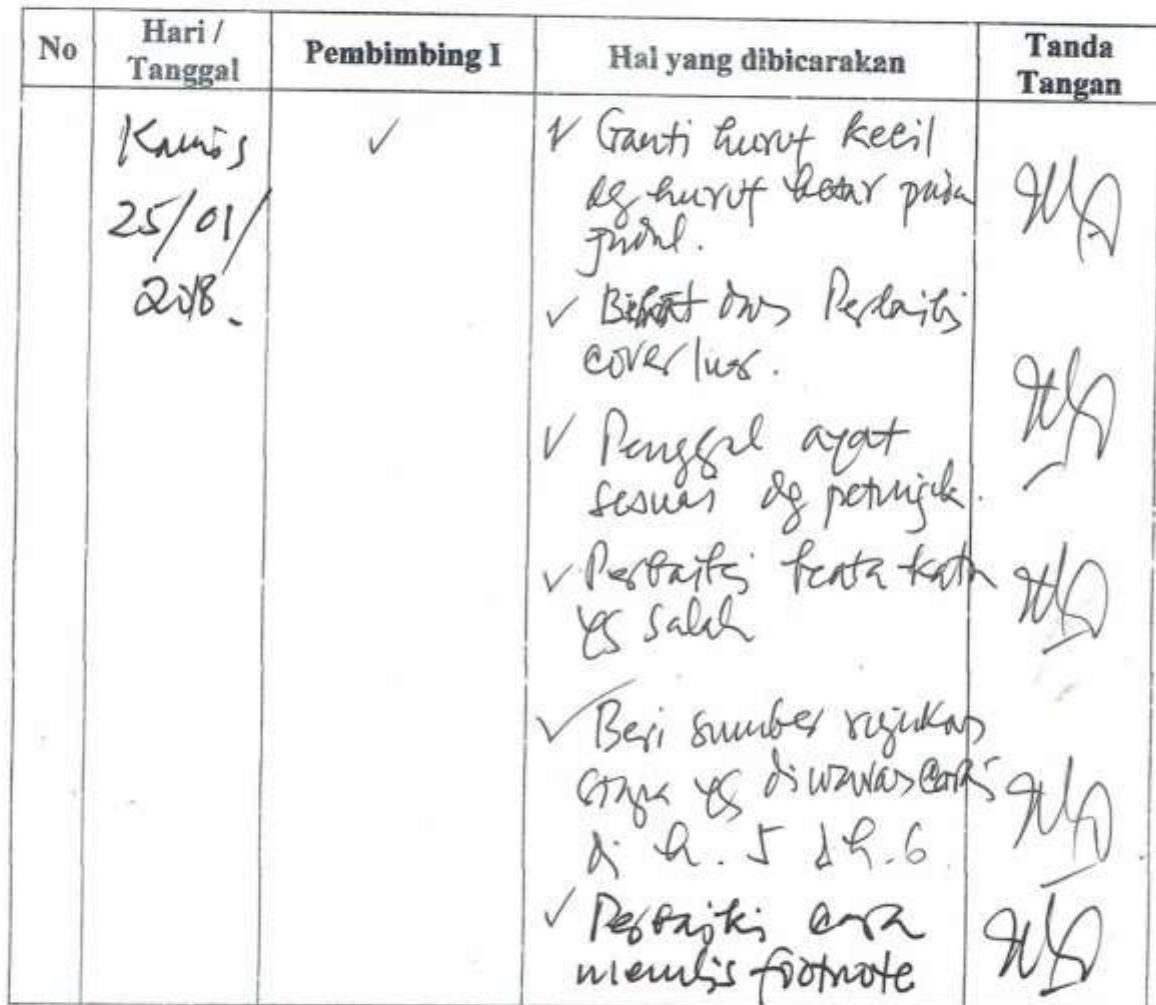 No
Hari /
Tanggal
Pembimbing I
Hal yang dibicarakan
Tanda
Tangan
Kamis
25/01/
2018.
✓
✓ Ganti huruf kecil
dg huruf besar pada
judul.
✓ dan Perbaiki
cover luar.
✓ Penggal ayat
sesuai dg petunjuk.
✓ Perbaiki kata-kata
yg salah
✓ Beri sumber rujukan
siapa yg diwawancarai
di h. 5 d h. 6
✓ Perbaiki cara
menulis footnote